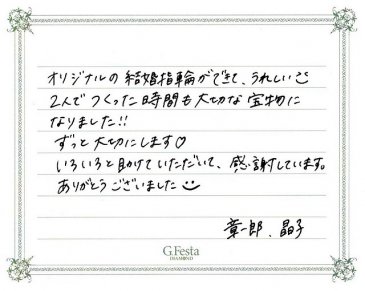 オリジナルの結婚指輪ができて、うれしい
2人でつくった時間も大切な宝物に
なりました!!
ずっと大切にします♡
いろいろと助けていただいて、感謝しています。
ありがとうございました
章一郎、晶子
G.Festa
DIAMOND